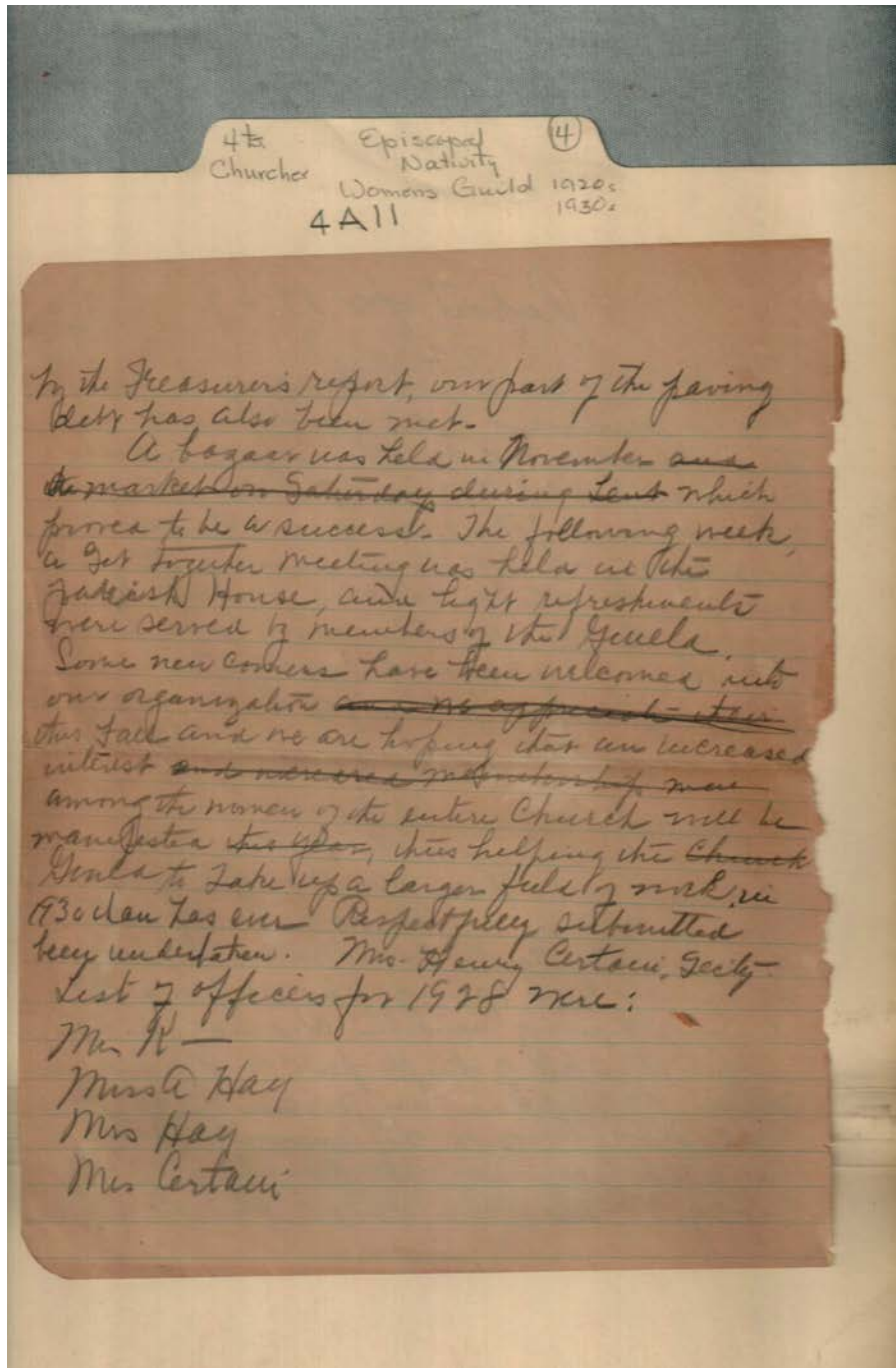 4ts. Episcopal (4)
Churches Nativity
Womens Guild 1920s
1930s
4A11
by the Treasurer's report, our part of the paving
debt has also been met.
A bazaar was held in November and
the market on Saturday during Lent which
proved to be a success. The following week,
a Get together meeting was held in the
Parish House, and light refreshments
were served by members of the Guild.
Some new comers have been welcomed into
our organization as we appreciate their
this Fall and we are hoping that an increased
interest and increased membership
among the women of the entire Church will be
manifested this year, thus helping the Church
Guild to take up a larger field of work, in
1930 than has ever Respectfully submitted
been undertaken. Mrs. Henry Certain, Sec'ty
List of officers for 1928 were:
Mrs K—
Miss A Hay
Mrs Hay
Mrs Certain